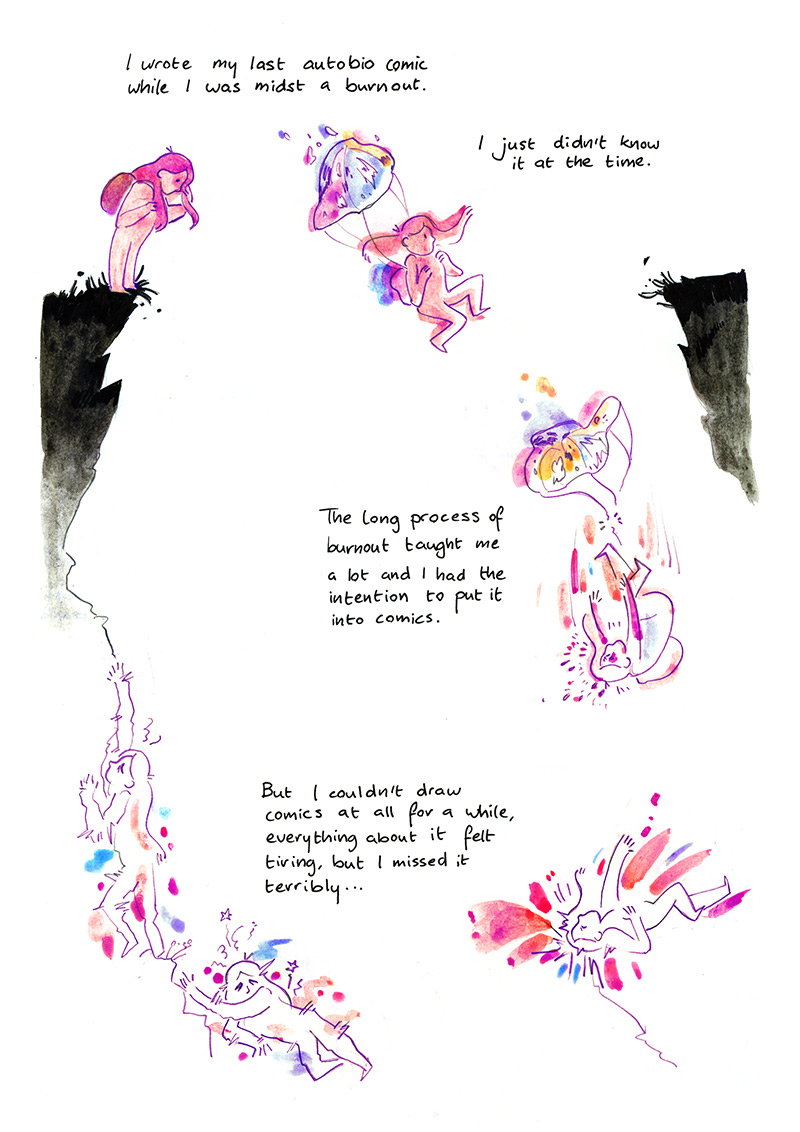 I wrote my last autobio comic
while I was midst a burnout.
I just didn't know
it at the time.
The long process of
burnout taught me
a lot and I had the
intention to put it
into comics.
But I couldn't draw
comics at all for a while,
everything about it felt
tiring, but I missed it
terribly...